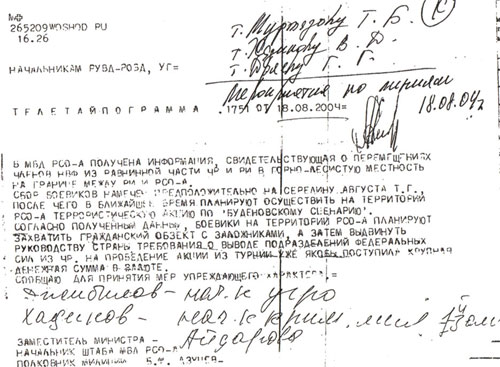 МФ
265209WOSHOD РU
16.26
т. Муртазову Т. Б.
т. Г. Г.
НАЧАЛЬНИКАМ РУВД-РОВД, УГ=
Мероприятие по линии
Т Е Л Е Т А Й П О Г Р А М М А
1751 ОТ 18.08.2004=
18.08.04г
В МВД РСО-А ПОЛУЧЕНА ИНФОРМАЦИЯ, СВИДЕТЕЛЬСТВУЮЩАЯ О ПЕРЕМЕЩЕНИЯХ
ЧЛЕНОВ НВФ ИЗ РАВНИННОЙ ЧАСТИ ЧР И РИ В ГОРНО-ЛЕСИСТУЮ МЕСТНОСТЬ
НА ГРАНИЦЕ МЕЖДУ РИ И РСО-А.
СБОР БОЕВИКОВ НАМЕЧЕН ПРЕДПОЛОЖИТЕЛЬНО НА СЕРЕДИНУ АВГУСТА Т.Г.,
ПОСЛЕ ЧЕГО В БЛИЖАЙШЕЕ ВРЕМЯ ПЛАНИРУЮТ ОСУЩЕСТВИТЬ НА ТЕРРИТОРИИ
РСО-А ТЕРРОРИСТИЧЕСКУЮ АКЦИЮ ПО 'БУДЕНОВСКОМУ СЦЕНАРИЮ'.
СОГЛАСНО ПОЛУЧЕННЫМ ДАННЫМ, БОЕВИКИ НА ТЕРРИТОРИИ РСО-А ПЛАНИРУЮТ
ЗАХВАТИТЬ ГРАЖДАНСКИЙ ОБЪЕКТ С ЗАЛОЖНИКАМИ, А ЗАТЕМ ВЫДВИНУТЬ
РУКОВОДСТВУ СТРАНЫ ТРЕБОВАНИЯ О ВЫВОДЕ ПОДРАЗДЕЛЕНИЙ ФЕДЕРАЛЬНЫХ
СИЛ ИЗ ЧР. НА ПРОВЕДЕНИЕ АКЦИИ ИЗ ТУРЦИИ УЖЕ ЯКОБЫ ПОСТУПИЛА КРУПНАЯ
ДЕНЕЖНАЯ СУММА В ВАЛЮТЕ.
СООБЩАЮ ДЛЯ ПРИНЯТИЯ МЕР УПРЕЖДАЮЩЕГО ХАРАКТЕРА.=
нач.к угро
Хадиков - нач. к крим. мил.
ЗАМЕСТИТЕЛЬ МИНИСТРА -
Айдарова
НАЧАЛЬНИК ШТАБА МВД РСО-А
ПОЛКОВНИК МИЛИЦИИ